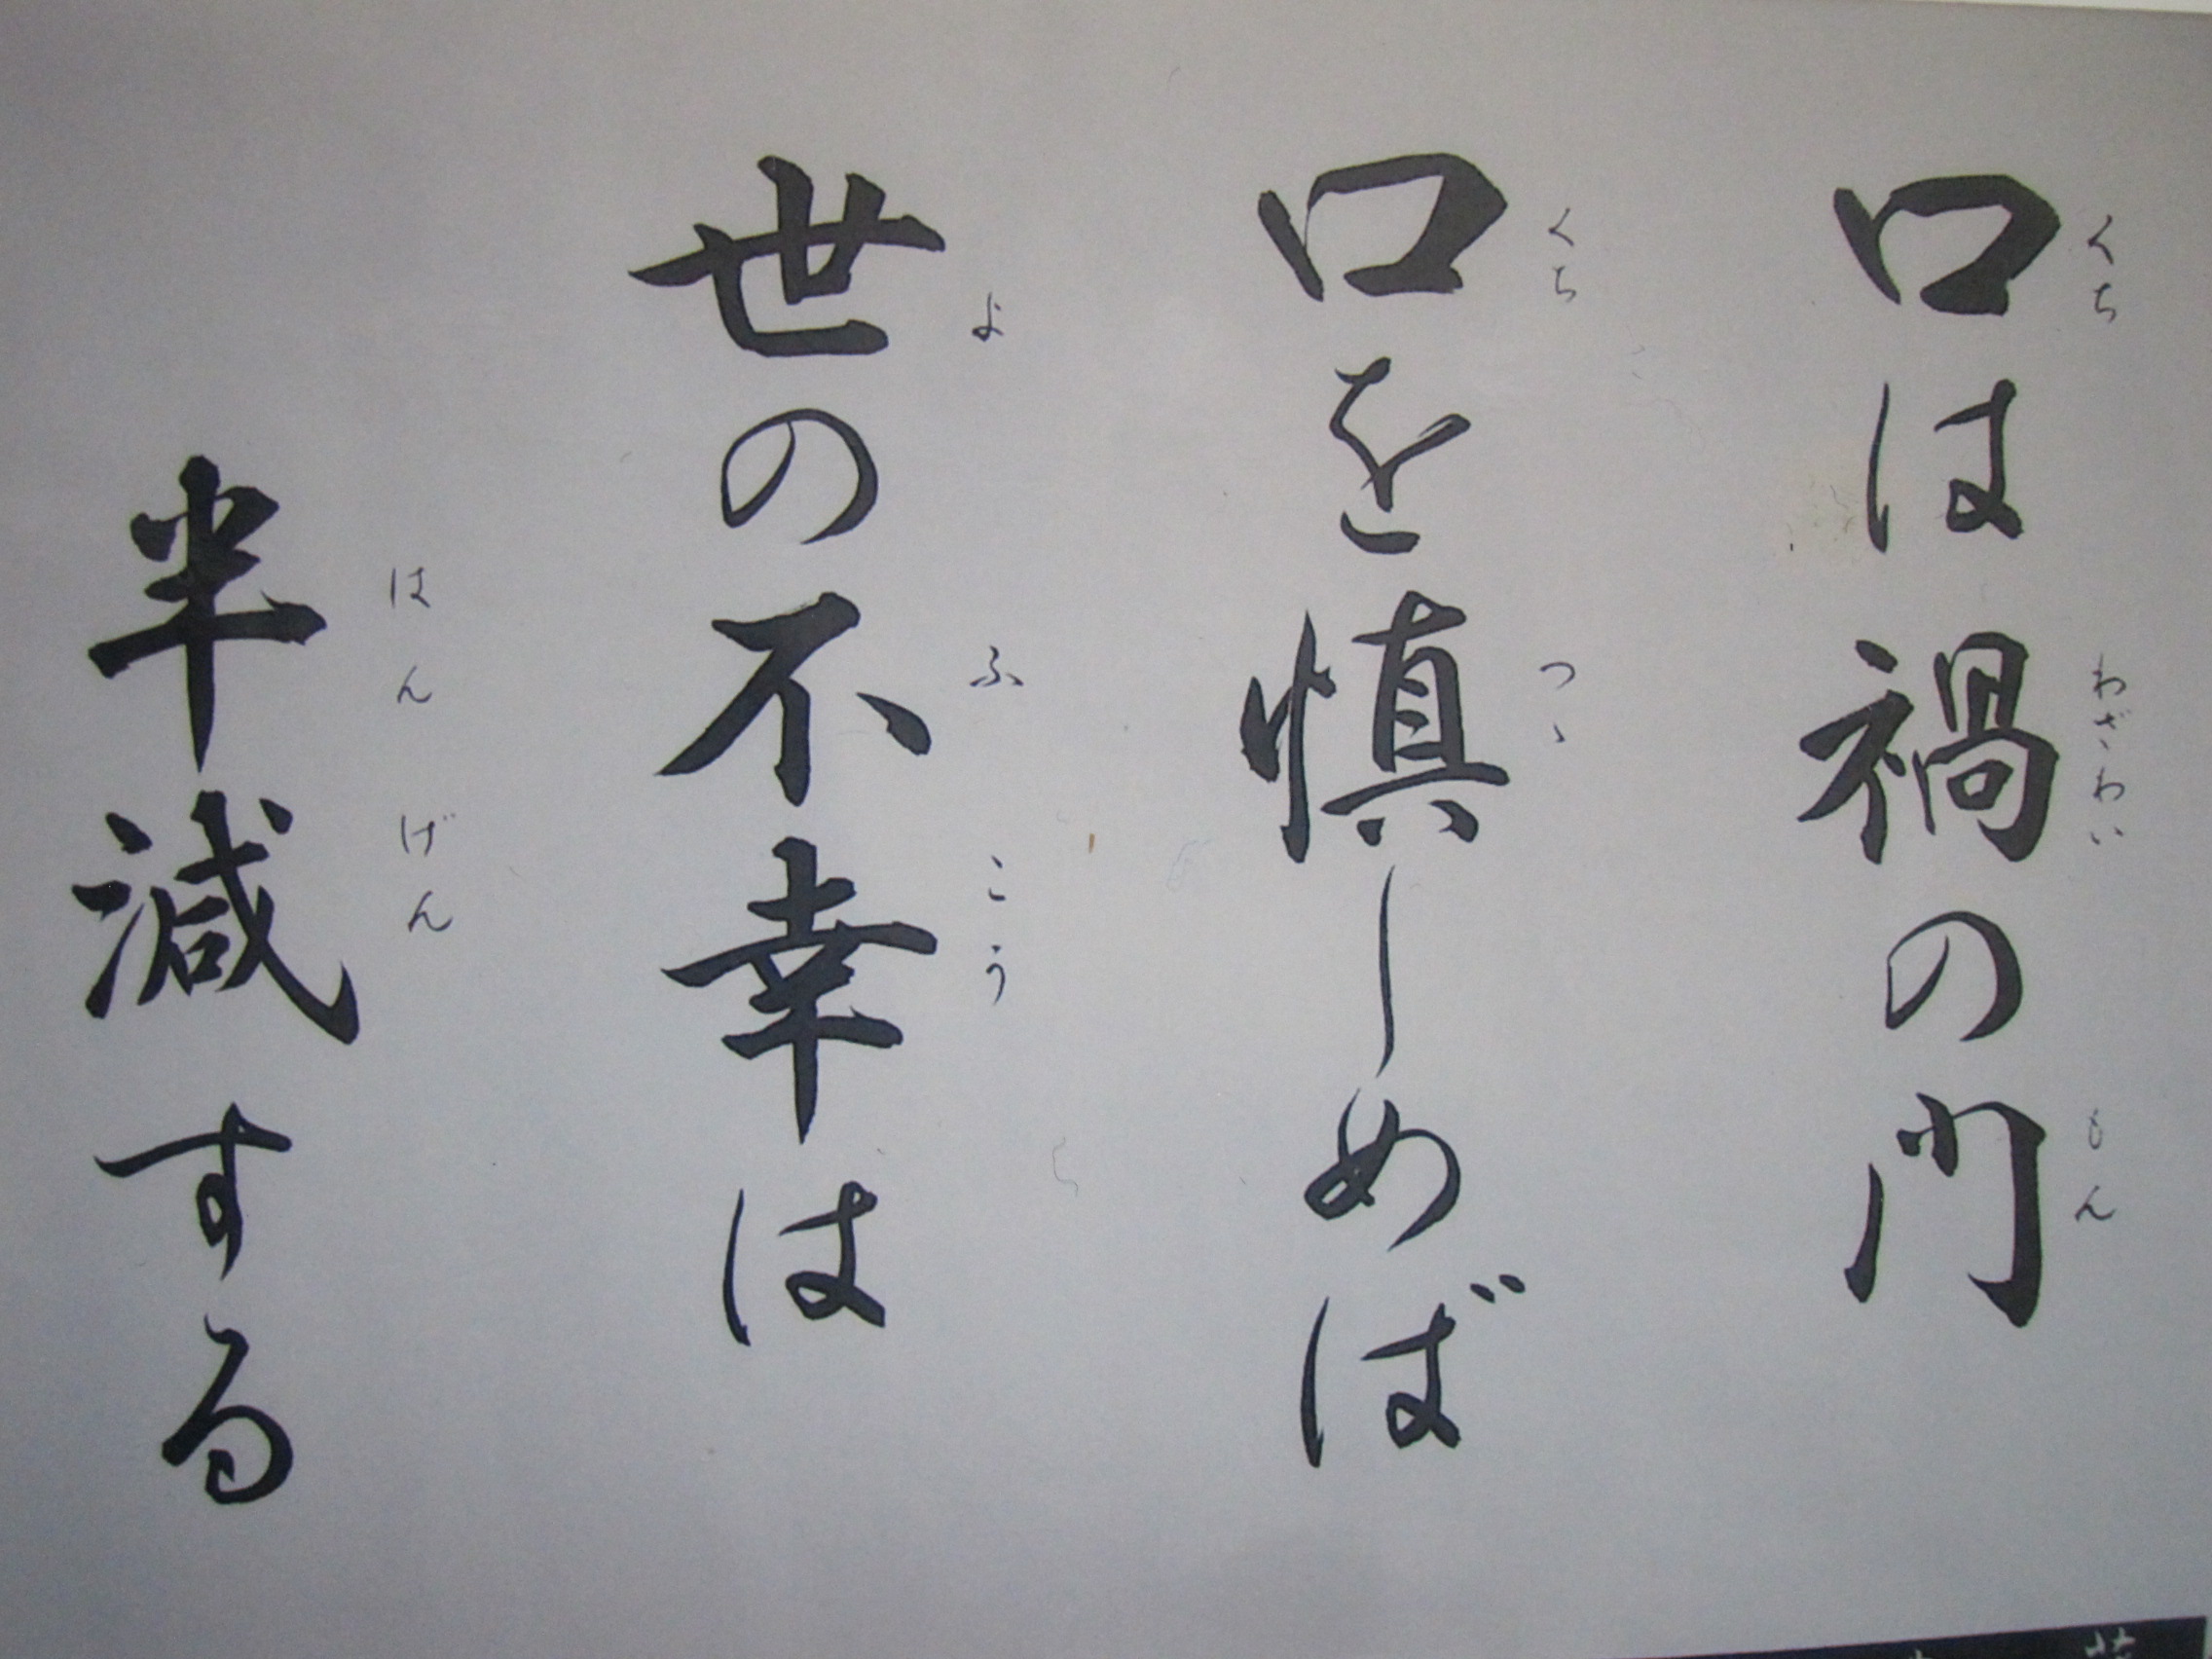 口は禍の門
くち わざわい もん
口を慎しめば
くち つゝ
世の不幸は
よ ふ こう
半減する
はん げん